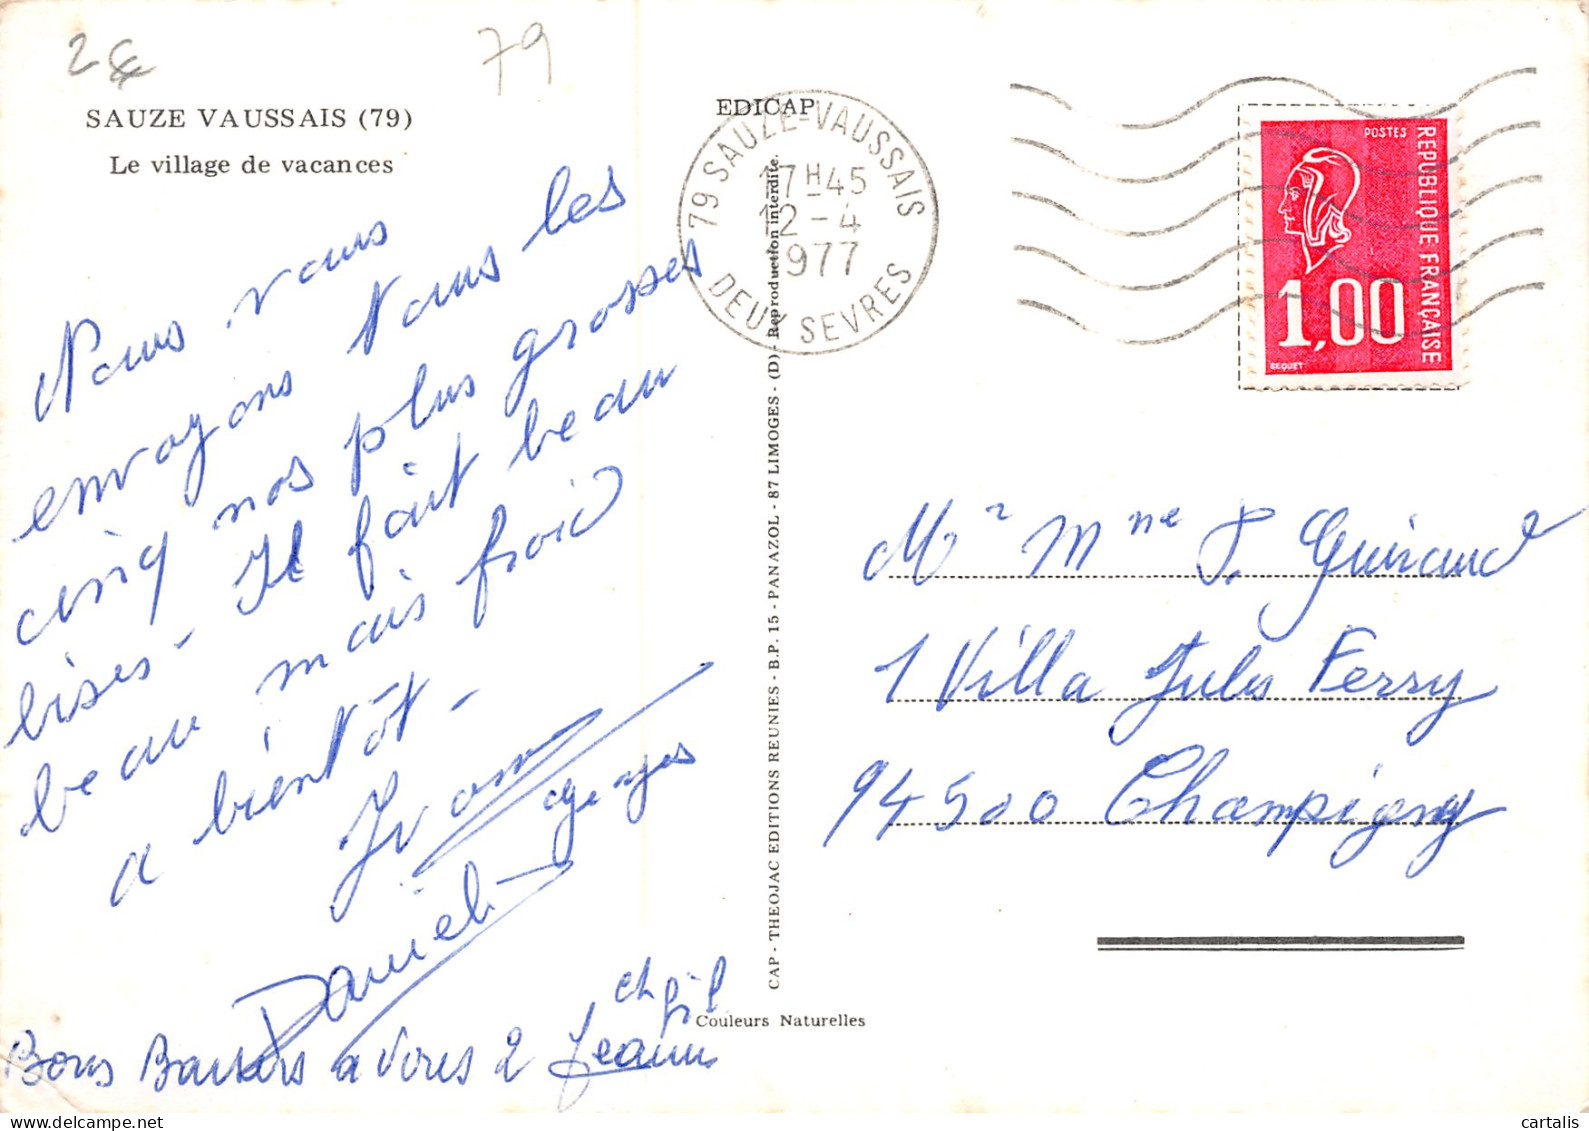 2€
79
SAUZE VAUSSAIS (79)
Le village de vacances
Nous vous
envoyons tous les
cinq nos plus grosses
bises - Il fait beau
beau mais froid
a bientôt -
Yvonne
Georges
Daniel
et
Bons Baisers a Vous 2 Jeanne
EDICAP
79 SAUZE-VAUSSAIS
17H45
12-4
1977
DEUX SEVRES
CAP - THEOJAC EDITIONS REUNIES - B.P. 15 - PANAZOL - 87 LIMOGES - (D) - Reproduction interdite.
Couleurs Naturelles
POSTES
REPUBLIQUE FRANÇAISE
1,00
BEQUET
Mr Mme P. Guiraud
1 Villa Jules Ferry
94500 Champigny
cartalis
www.delcampe.net